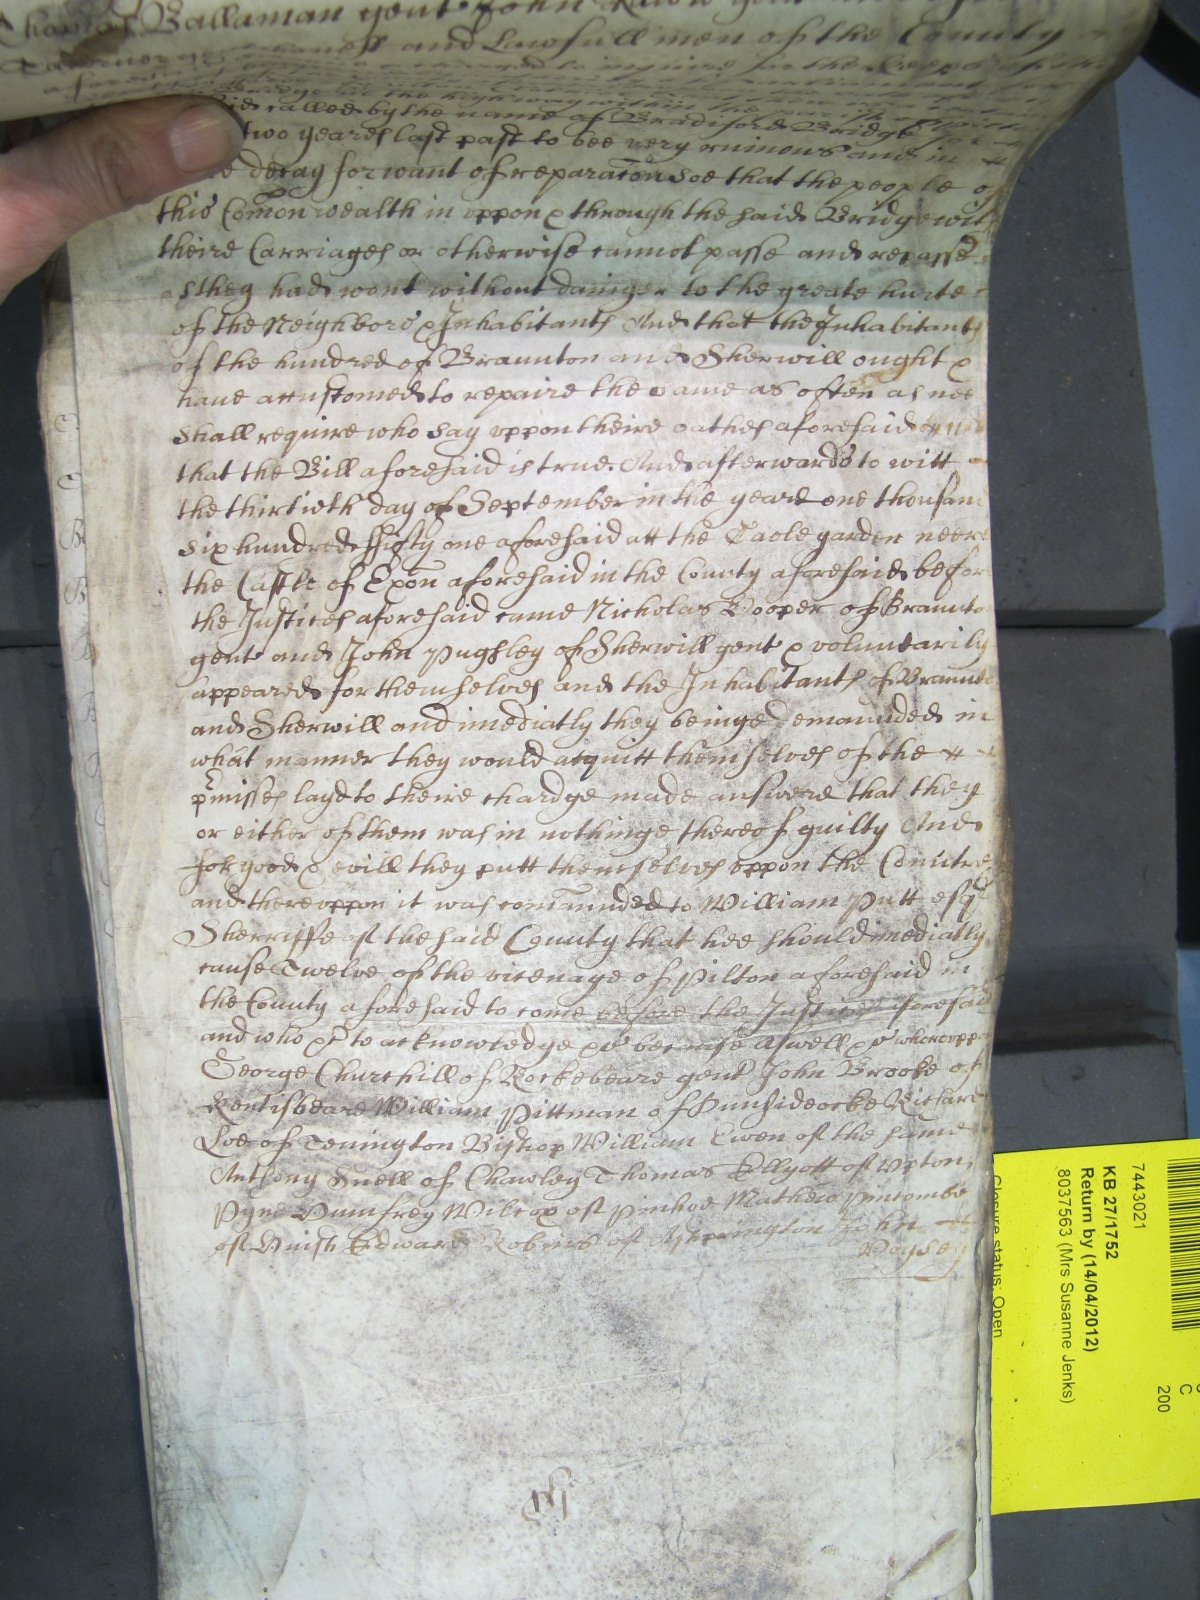 Ballaman gent John
honest and Lawfull men of the County
called by the name of Bradiford Bridge
two yeares last past to bee very ruinous and in
decay for want of reparacon soe that the people of
this Comon wealth in uppon & through the said Bridge wit
theire Carriages or otherwise cannot passe and repasse
as they had wont without dainger to the greate hurte
of the Neighbors & Inhabitants And that the Inhabitants
of the hundred of Braunton and Sherwill ought &
haue accustomed to repaire the same as often as nee
shall require who say uppon theire oathes aforesaid
that the Bill aforesaid is true. And afterwards to witt
the thirtieth day of September in the yeare one thousan
six hundred fifty one aforesaid att the Gaole garden neere
the Castle of Exon aforesaid in the County aforesaid befor
the Justices aforesaid came Nicholas Hooper of Braunto
gent and John Pughsley of Sherwill gent & voluntarily
appeared for themselves and the Inhabitants of Braunto
and Sherwill and imediatly they beinge demaunded in
what manner they would acquitt themselves of the
pmisses layd to theire chardge made answere that they
or either of them was in nothinge thereof guilty And
for good & evill they putt themselves uppon the Countre
and thereuppon it was comaunded to William Putt esqr
Sherriffe of the said County that hee should imediatly
cause Twelve of the vicenage of Pilton aforesaid in
the County aforesaid to come before the Justices aforesaid
and who &c to acknowledge &c because aswell &c whereupp
George Churchill of Rockebeare gent John Brooke of
Kentisbeare William Pittman of Dunsideocke Richard
Loe of Teington Bishop William Ewen of the same
Anthony Snell of Chawley Thomas Ellyott of Upton
Pyne Humfrey Wilcox of Pinhoe Mathew Pincombe
of Huish Edward Robins of Ashprington John
Voysey
7443021
KB 27/1752
Return by (14/04/2012)
8037563 (Mrs Susanne Jenks)
Closure status: Open
C
200